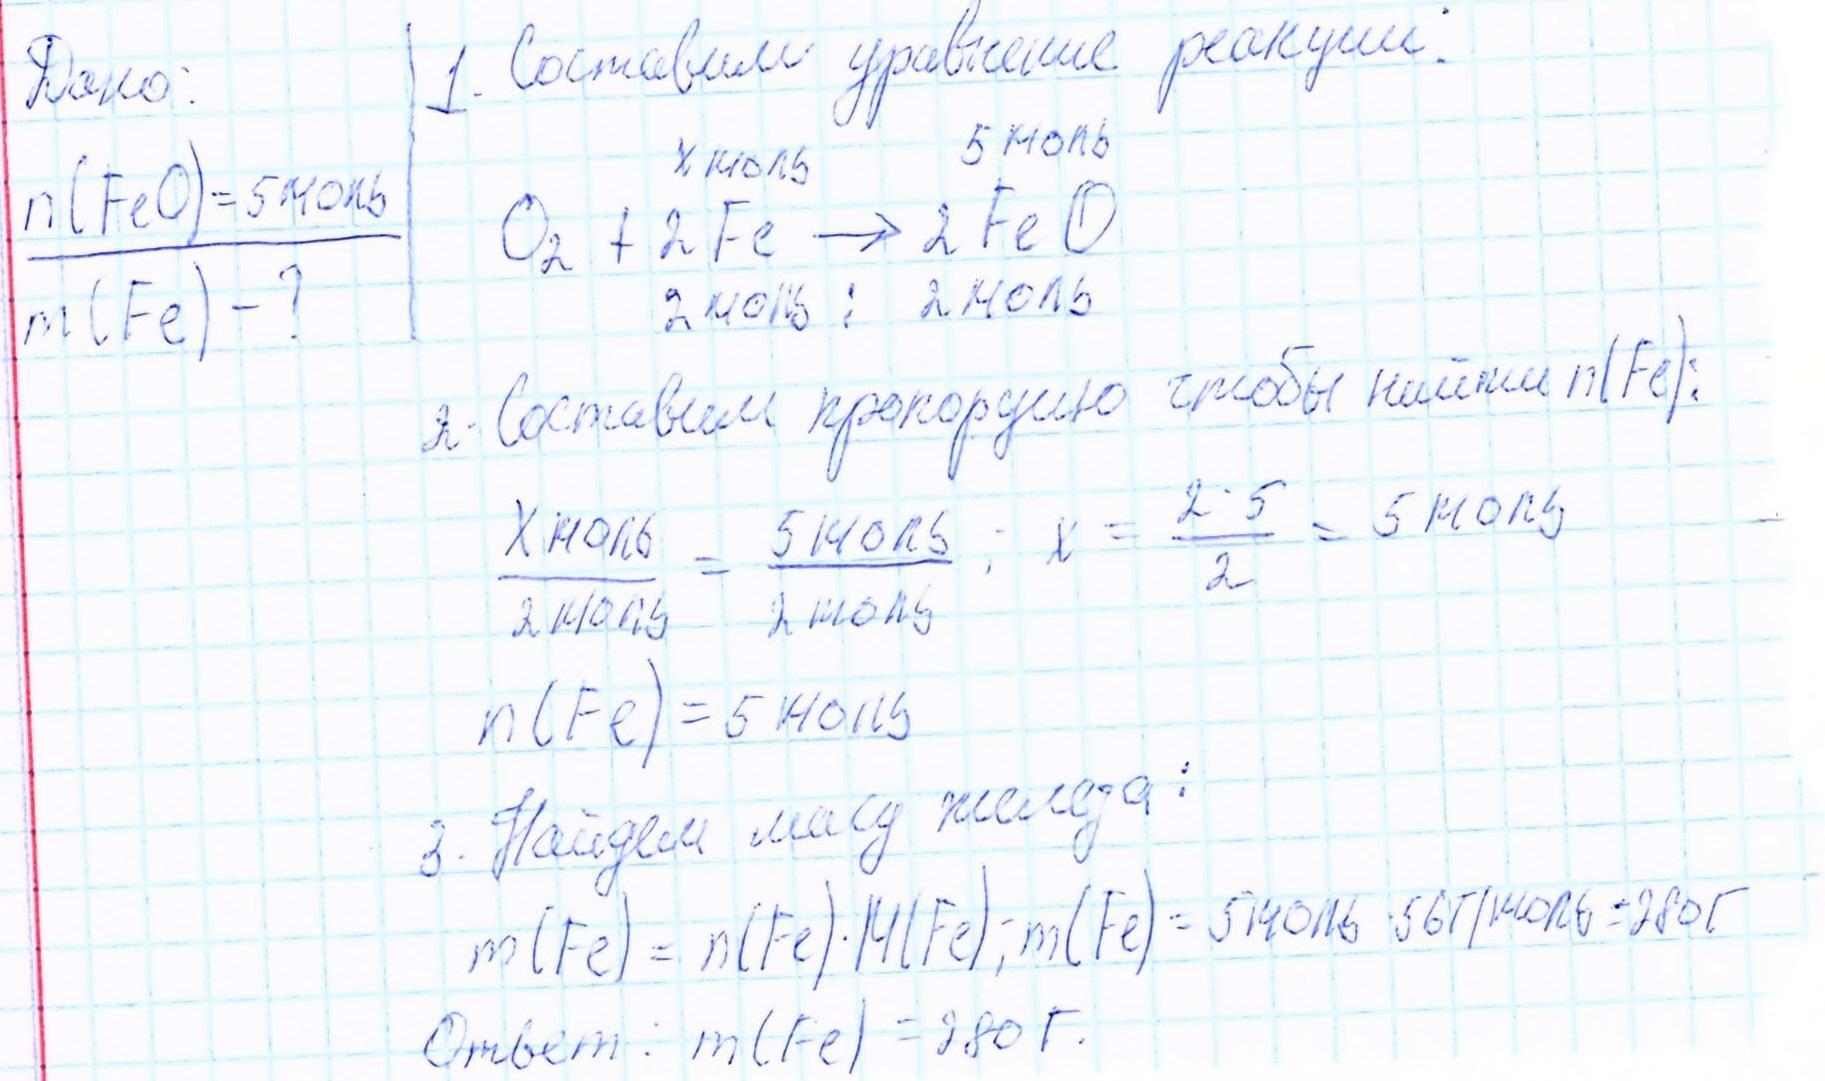 Дано:
n(FeO)=5моль
m(Fe)-?
1. Составим уравнение реакции:
x моль 5 моль
O₂ + 2Fe → 2FeO
2 моль : 2 моль
2. Составим пропорцию чтобы найти n(Fe):
x моль / 2 моль = 5 моль / 2 моль ; x = 2·5 / 2 = 5 моль
n(Fe) = 5 моль
3. Найдем масу железа:
m(Fe) = n(Fe)·M(Fe); m(Fe) = 5 моль · 56 г/моль = 280 г
Ответ: m(Fe) = 280 г.